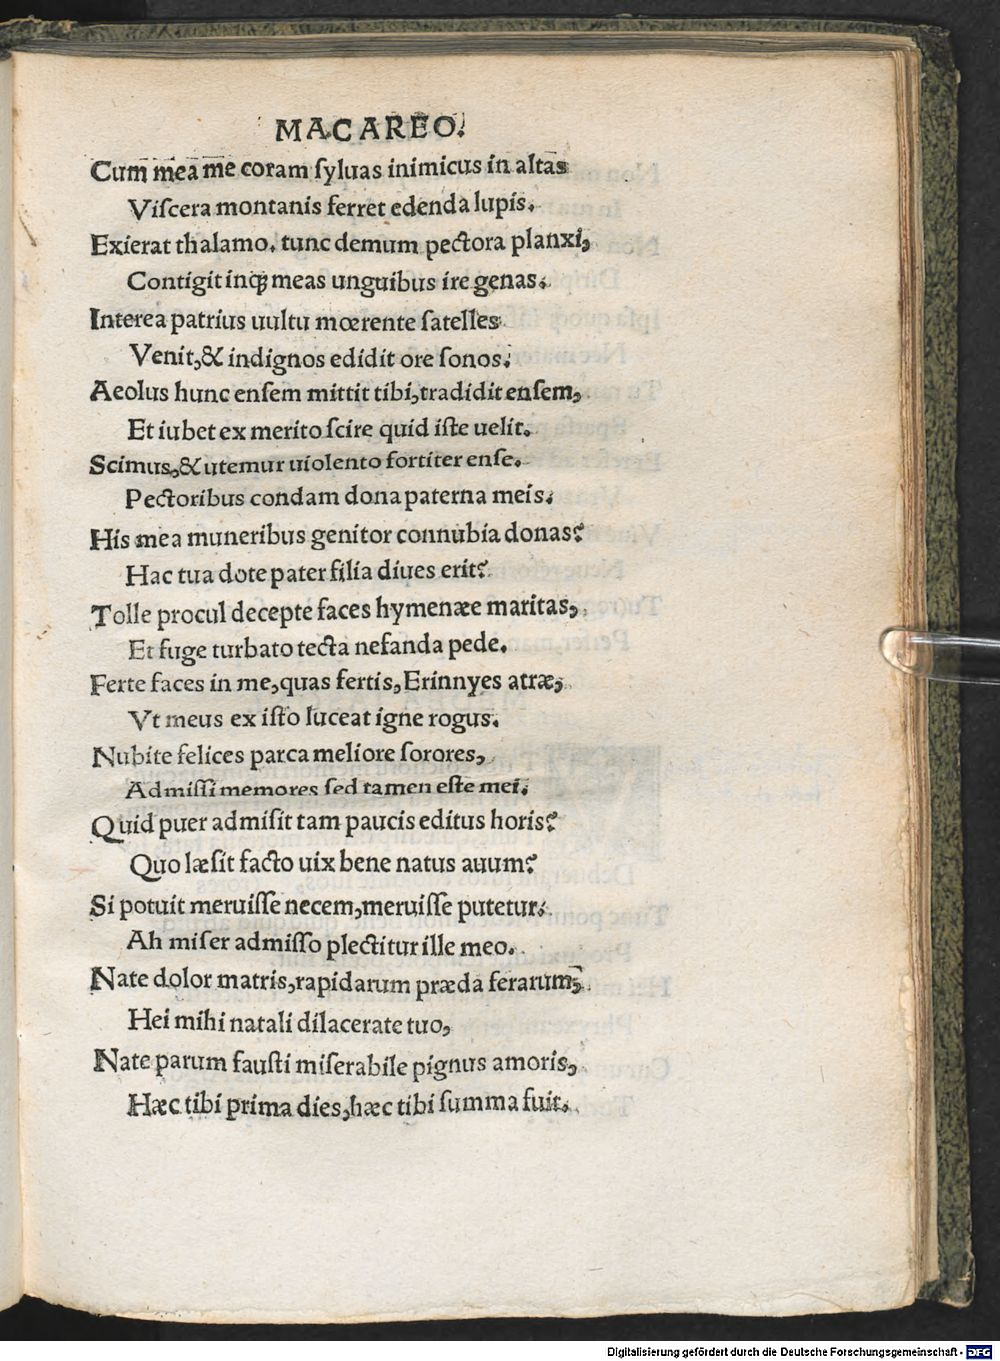 MACAREO.
Cum mea me coram ſyluas inimicus in altas
Viſcera montanis ferret edenda lupis.
Exierat thalamo. tunc demum pectora planxi,
Contigit inq; meas unguibus ire genas.
Interea patrius uultu mœrente ſatelles
Venit,& indignos edidit ore ſonos.
Aeolus hunc enſem mittit tibi,tradidit enſem,
Et iubet ex merito ſcire quid iſte uelit.
Scimus,& utemur uiolento fortiter enſe.
Pectoribus condam dona paterna meis.
His mea muneribus genitor connubia donas?
Hac tua dote pater filia diues erit?
Tolle procul decepte faces hymenæe maritas,
Et fuge turbato tecta nefanda pede.
Ferte faces in me,quas fertis,Erinnyes atræ,
Vt meus ex iſto luceat igne rogus.
Nubite felices parca meliore ſorores,
Admiſſi memores ſed tamen eſte mei.
Quid puer admiſit tam paucis editus horis?
Quo læſit facto uix bene natus auum?
Si potuit meruiſſe necem,meruiſſe putetur.
Ah miſer admiſſo plectitur ille meo.
Nate dolor matris,rapidarum præda ferarum,
Hei mihi natali dilacerate tuo,
Nate parum fauſti miſerabile pignus amoris,
Hæc tibi prima dies,hæc tibi ſumma fuit.
Digitalisierung gefördert durch die Deutsche Forschungsgemeinschaft - DFG